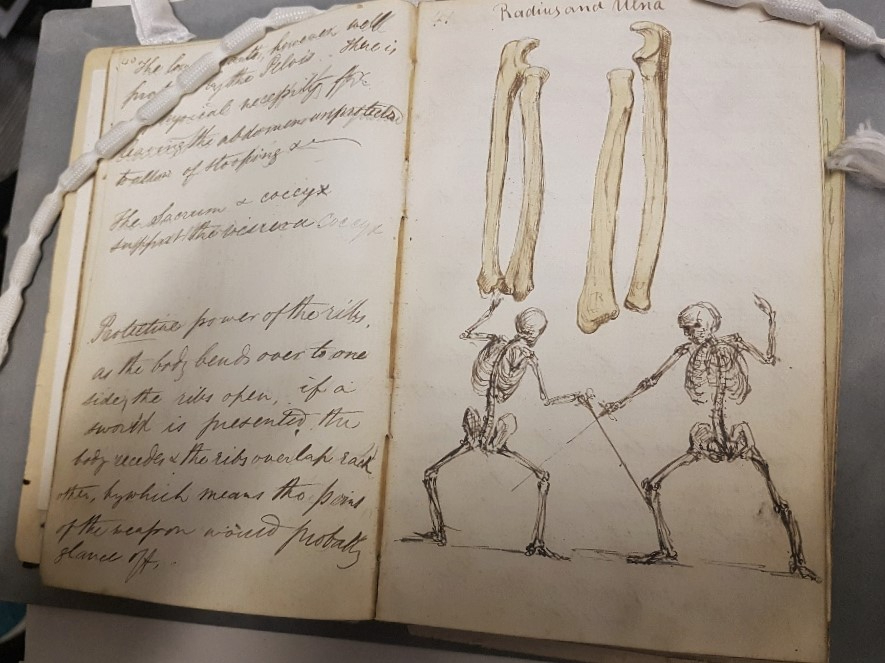 40
The
however well
by the Pelvis. There is
necessity for
leaving the abdomen unprotected
to allow of stooping &c
The Sacrum & coccyx
support the viscera
Protective power of the ribs,
as the body bends over to one
side, the ribs open, if a
sword is presented, the
body recedes & the ribs overlap each
other, by which means the point
of the weapon would probably
glance off.
41
Radius and Ulna